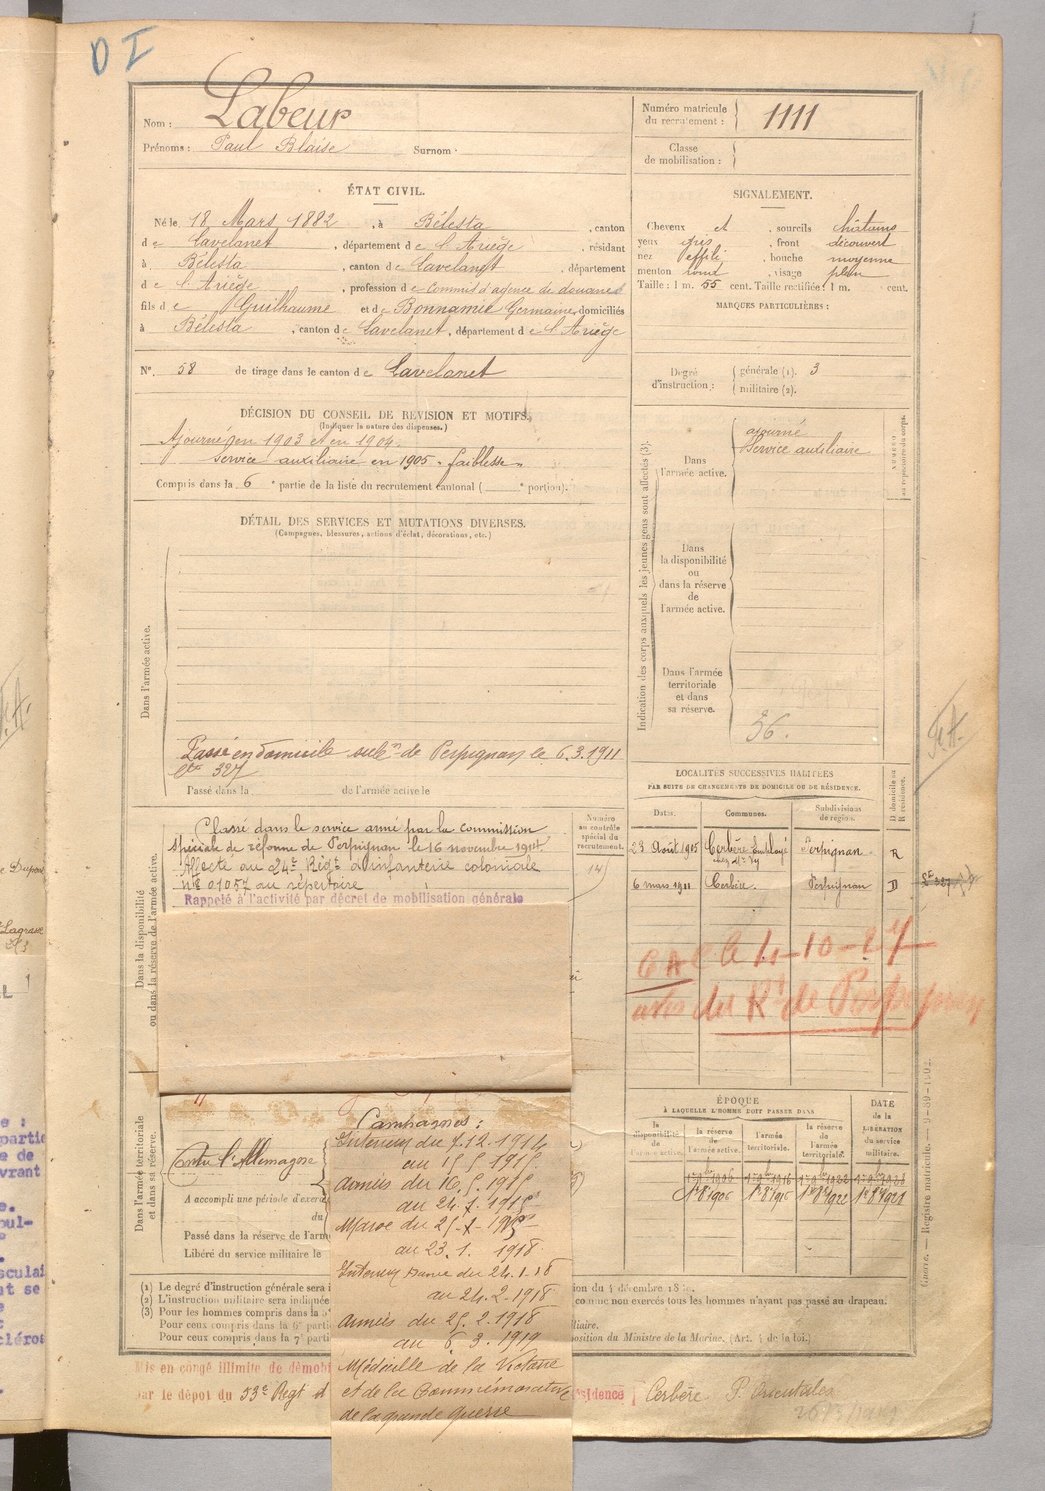 D I
Nom : Labeur
Prénoms : Paul Blaise Surnom :
Numéro matricule
du recrutement : 1111
Classe
de mobilisation :
ÉTAT CIVIL.
Né le 18 Mars 1882, à Bélesta, canton
de Lavelanet, département de l'Ariège, résidant
à Bélesta, canton de Lavelanet, département
de l'Ariège, profession de commis d'agence de douanes
fils de Guilhaume et de Bonnamic Germaine, domiciliés
à Bélesta, canton de Lavelanet, département de l'Ariège
N° 58 de tirage dans le canton de Lavelanet
SIGNALEMENT.
Cheveux et, sourcils châtains
yeux gris, front découvert
nez effilé, bouche moyenne
menton rond, visage plein
Taille : 1 m. 55 cent. Taille rectifiée : 1 m. cent.
MARQUES PARTICULIÈRES :
Degré
d'instruction :
générale (1). 3
militaire (2).
DÉCISION DU CONSEIL DE REVISION ET MOTIFS.
(Indiquer la nature des dispenses.)
Ajourné en 1903 et en 1904.
Service auxiliaire en 1905 - faiblesse -
Compris dans la 6e partie de la liste du recrutement cantonal ( e portion).
DÉTAIL DES SERVICES ET MUTATIONS DIVERSES.
(Campagnes, blessures, actions d'éclat, décorations, etc.)
Dans l'armée active.
Passé en domicile subon de Perpignan le 6.3.1911
327
Passé dans la de l'armée active le
Indication des corps auxquels les jeunes gens sont affectés (3).
Dans
l'armée active.
ajourné
Service auxiliaire
NUMÉRO
au répertoire du corps.
Dans
la disponibilité
ou
dans la réserve
de
l'armée active.
Dans l'armée
territoriale
et dans
sa réserve.
36.
LOCALITÉS SUCCESSIVES HABITÉES
PAR SUITE DE CHANGEMENTS DE DOMICILE OU DE RÉSIDENCE.
Dates. Communes. Subdivisions
de région.
D domicile ou
R résidence.
23 Août 1905 Cerbère Employé Perpignan R
6 mars 1911 Cerbère. Perpignan D
Dans la disponibilité
ou dans la réserve de l'armée active.
Numéro
au contrôle
spécial du
recrutement.
Classé dans le service armé par la commission
spéciale de réforme de Perpignan le 16 novembre 1914
Affecté au 24e Régt d'infanterie coloniale
n° 01057 au répertoire
Rappelé à l'activité par décret de mobilisation générale
4-10-27
du Rt de Perpignan
ÉPOQUE
À LAQUELLE L'HOMME DOIT PASSER DANS
la
disponibilité
de
l'armée active
la réserve
de
l'armée active.
l'armée
territoriale.
la réserve
de
l'armée
territoriale.
DATE
de la
LIBÉRATION
du service
militaire.
1er 8bre 1906 1er 8bre 1916 1er 8bre 1922 1er 8bre 1928
Dans l'armée territoriale
et dans sa réserve.
Contre l'Allemagne
A accompli une période d'exerci
du
Passé dans la réserve de l'arm
Libéré du service militaire le
Campagnes :
Intérieur du 7.12.1914
au 15 5 1915.
Armées du 16.5.1915
au 24.7.1915
Maroc du 25-7-1915
au 23.1.1918
Intérieur France du 24.1.18
au 24.2.1918
Armées du 25.2.1918
au 6 3.1919
Médaille de la Victoire
et de la Commémorative
de la grande guerre
(1) Le degré d'instruction générale sera i
(2) L'instruction militaire sera indiquée
comme non exercés tous les hommes n'ayant pas passé au drapeau.
(3) Pour les hommes compris dans la 5e
Pour ceux compris dans la 6e parti
Pour ceux compris dans la 7e parti
position du Ministre de la Marine. (Art. 4 de la loi.)
Mis en congé illimité de démobi
par le dépôt du 53e Régt d
Résidence Cerbère P. Orientales